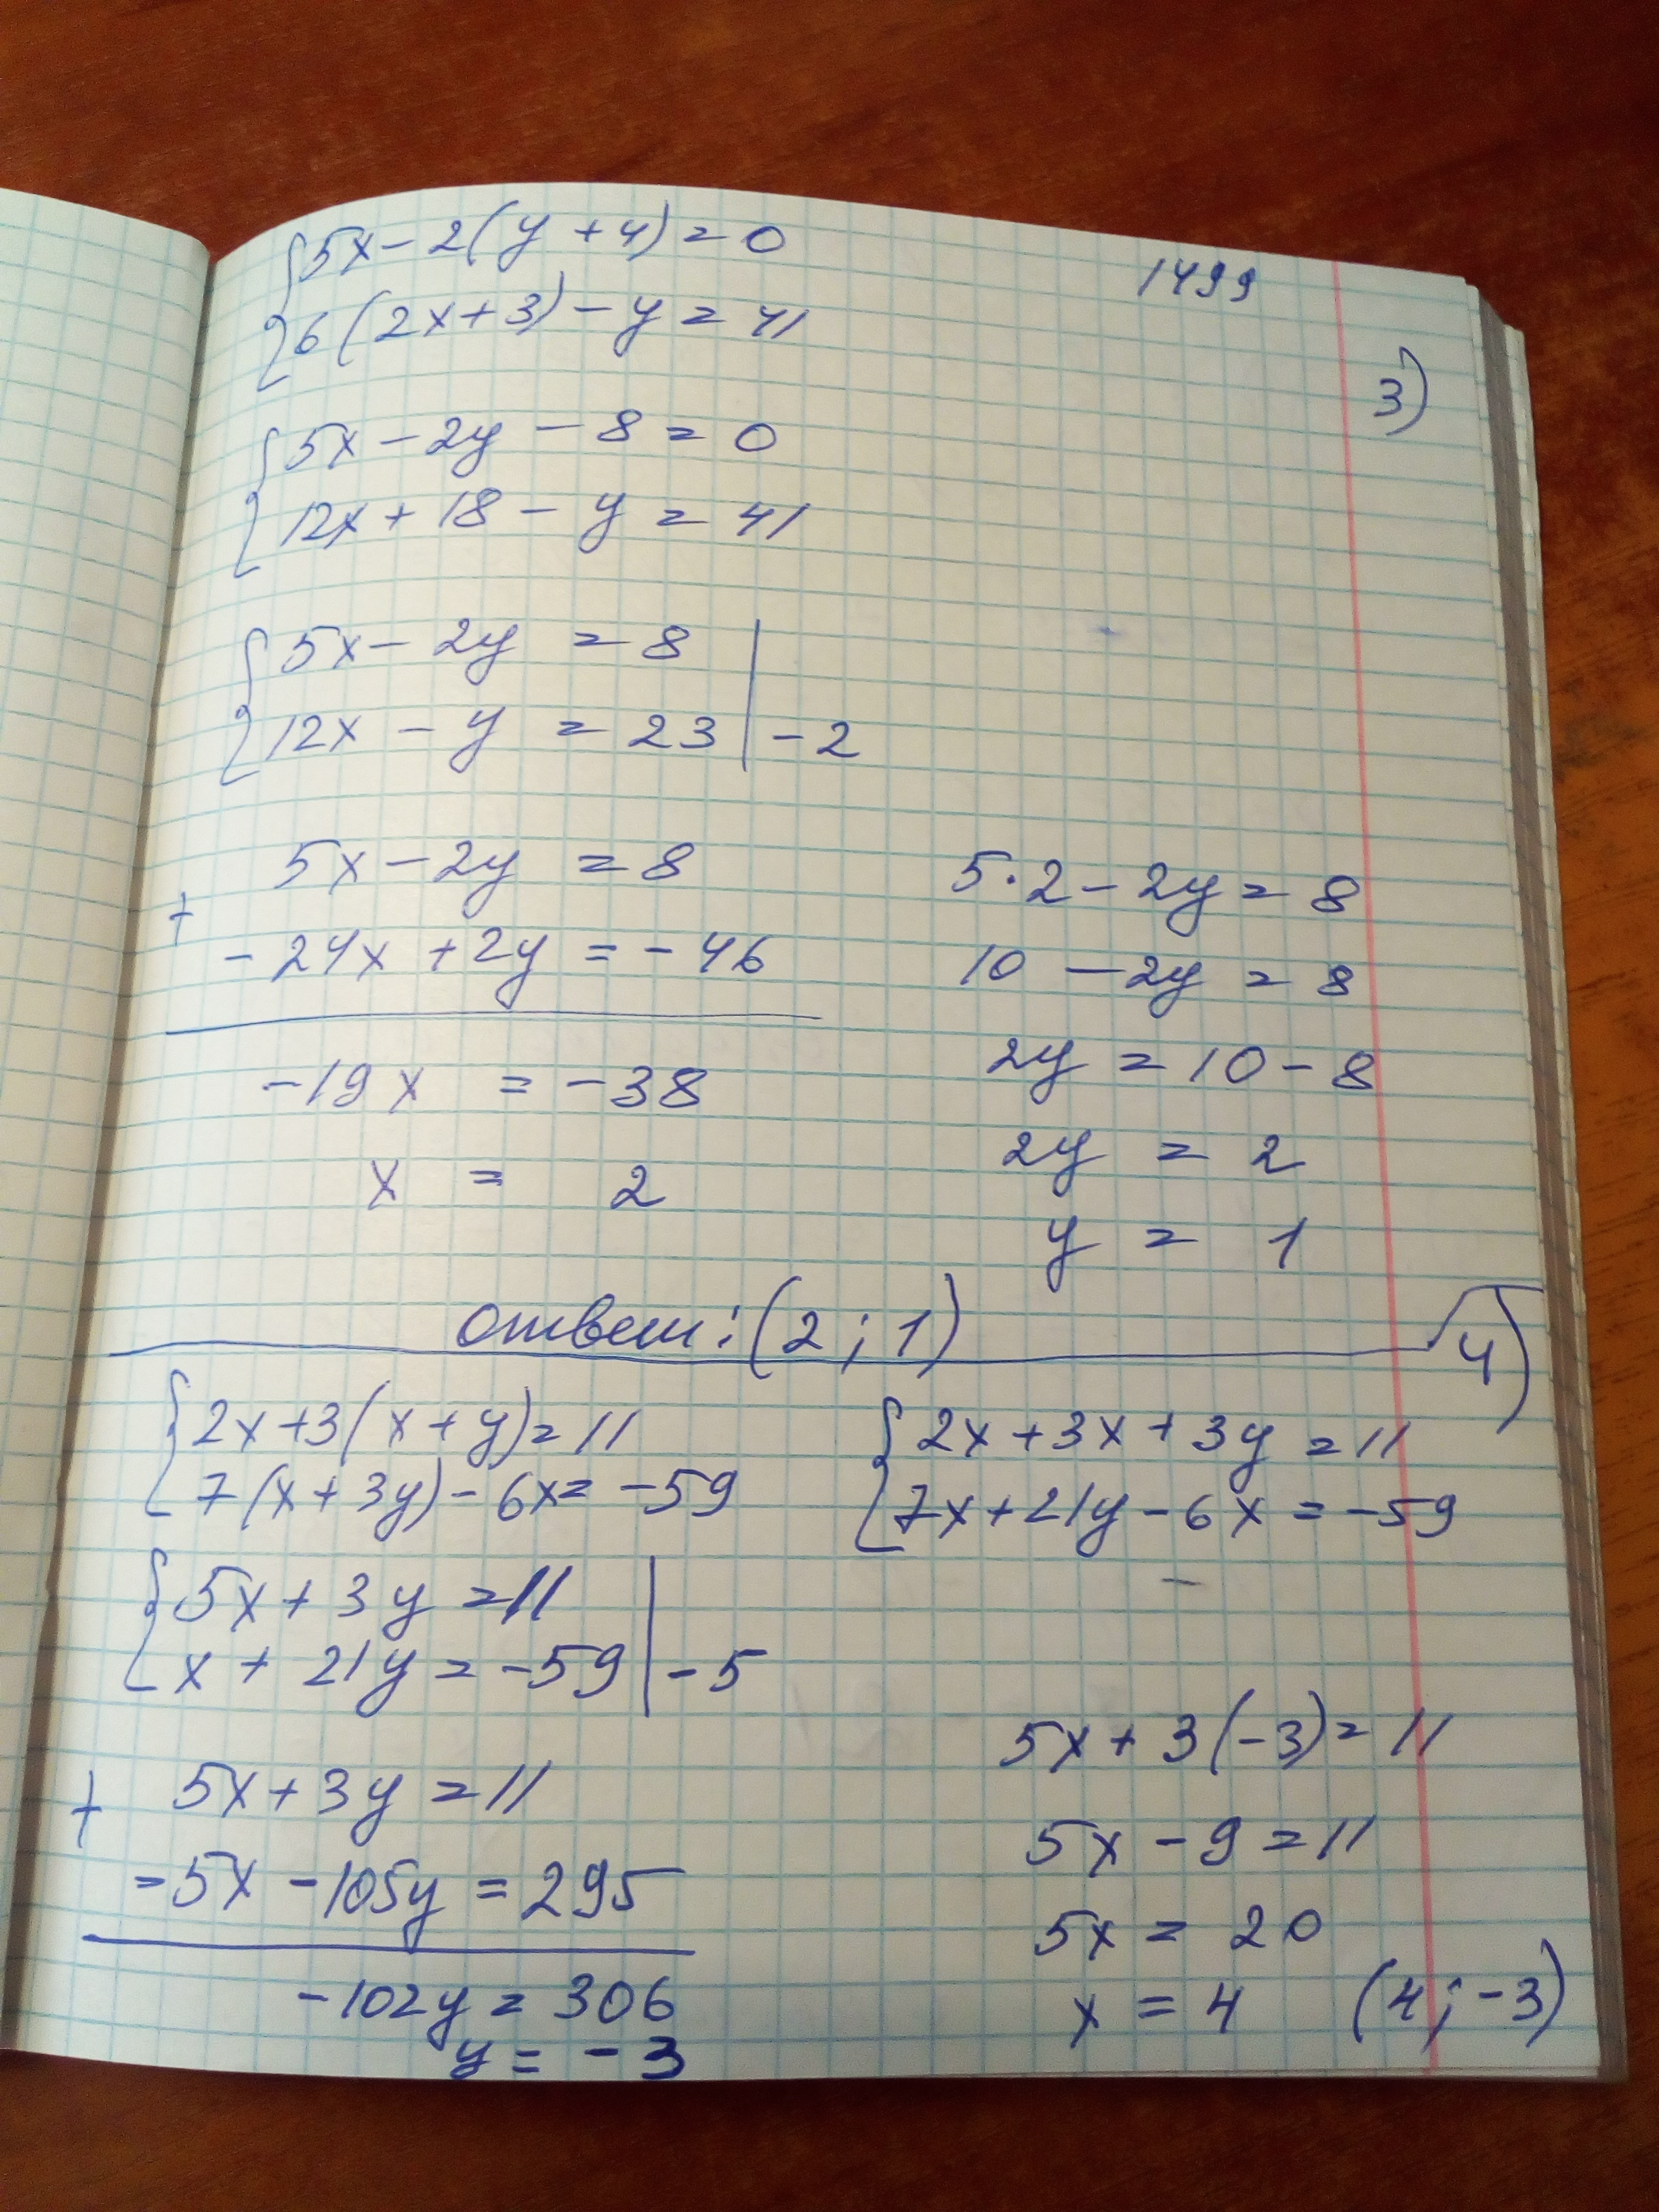 1499
3)
5x - 2(y + 4) = 0
6(2x + 3) - y = 41
5x - 2y - 8 = 0
12x + 18 - y = 41
5x - 2y = 8
12x - y = 23 | -2
5x - 2y = 8
+
- 24x + 2y = - 46
-19x = -38
x = 2
5·2 - 2y = 8
10 - 2y = 8
2y = 10 - 8
2y = 2
y = 1
ответ: (2 ; 1)
4)
2x + 3(x + y) = 11
7(x + 3y) - 6x = -59
2x + 3x + 3y = 11
7x + 21y - 6x = -59
5x + 3y = 11
x + 21y = -59 | -5
5x + 3y = 11
+
-5x - 105y = 295
-102y = 306
y = -3
5x + 3(-3) = 11
5x - 9 = 11
5x = 20
x = 4 (4 ; -3)